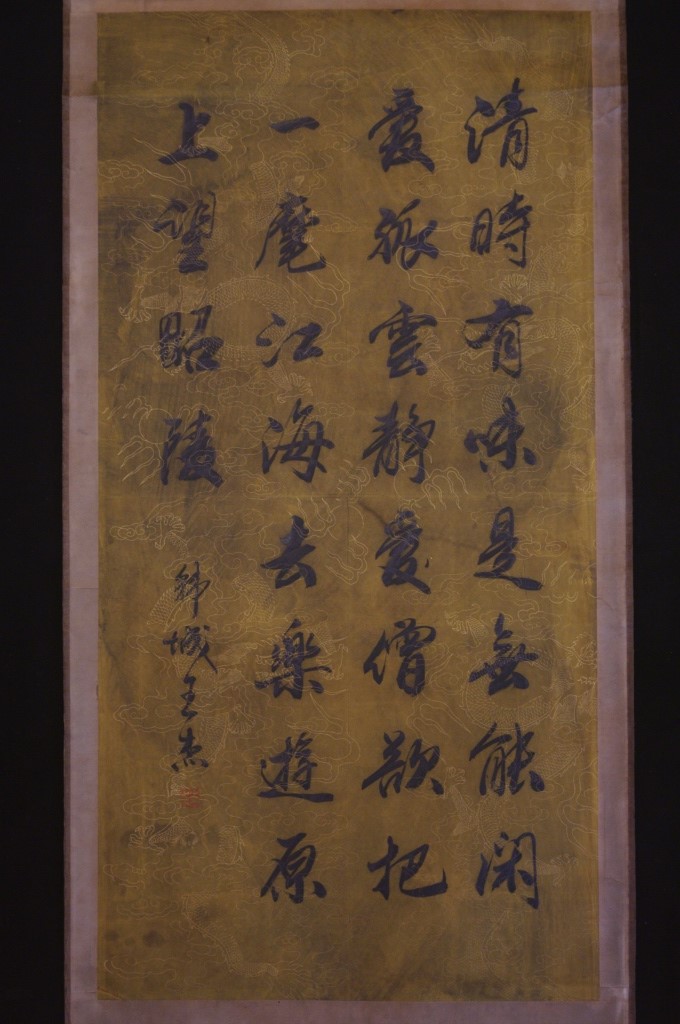 清時有味是無能閑
愛孤雲靜愛僧欲把
一麾江海去樂遊原
上望昭陵
韓城王杰